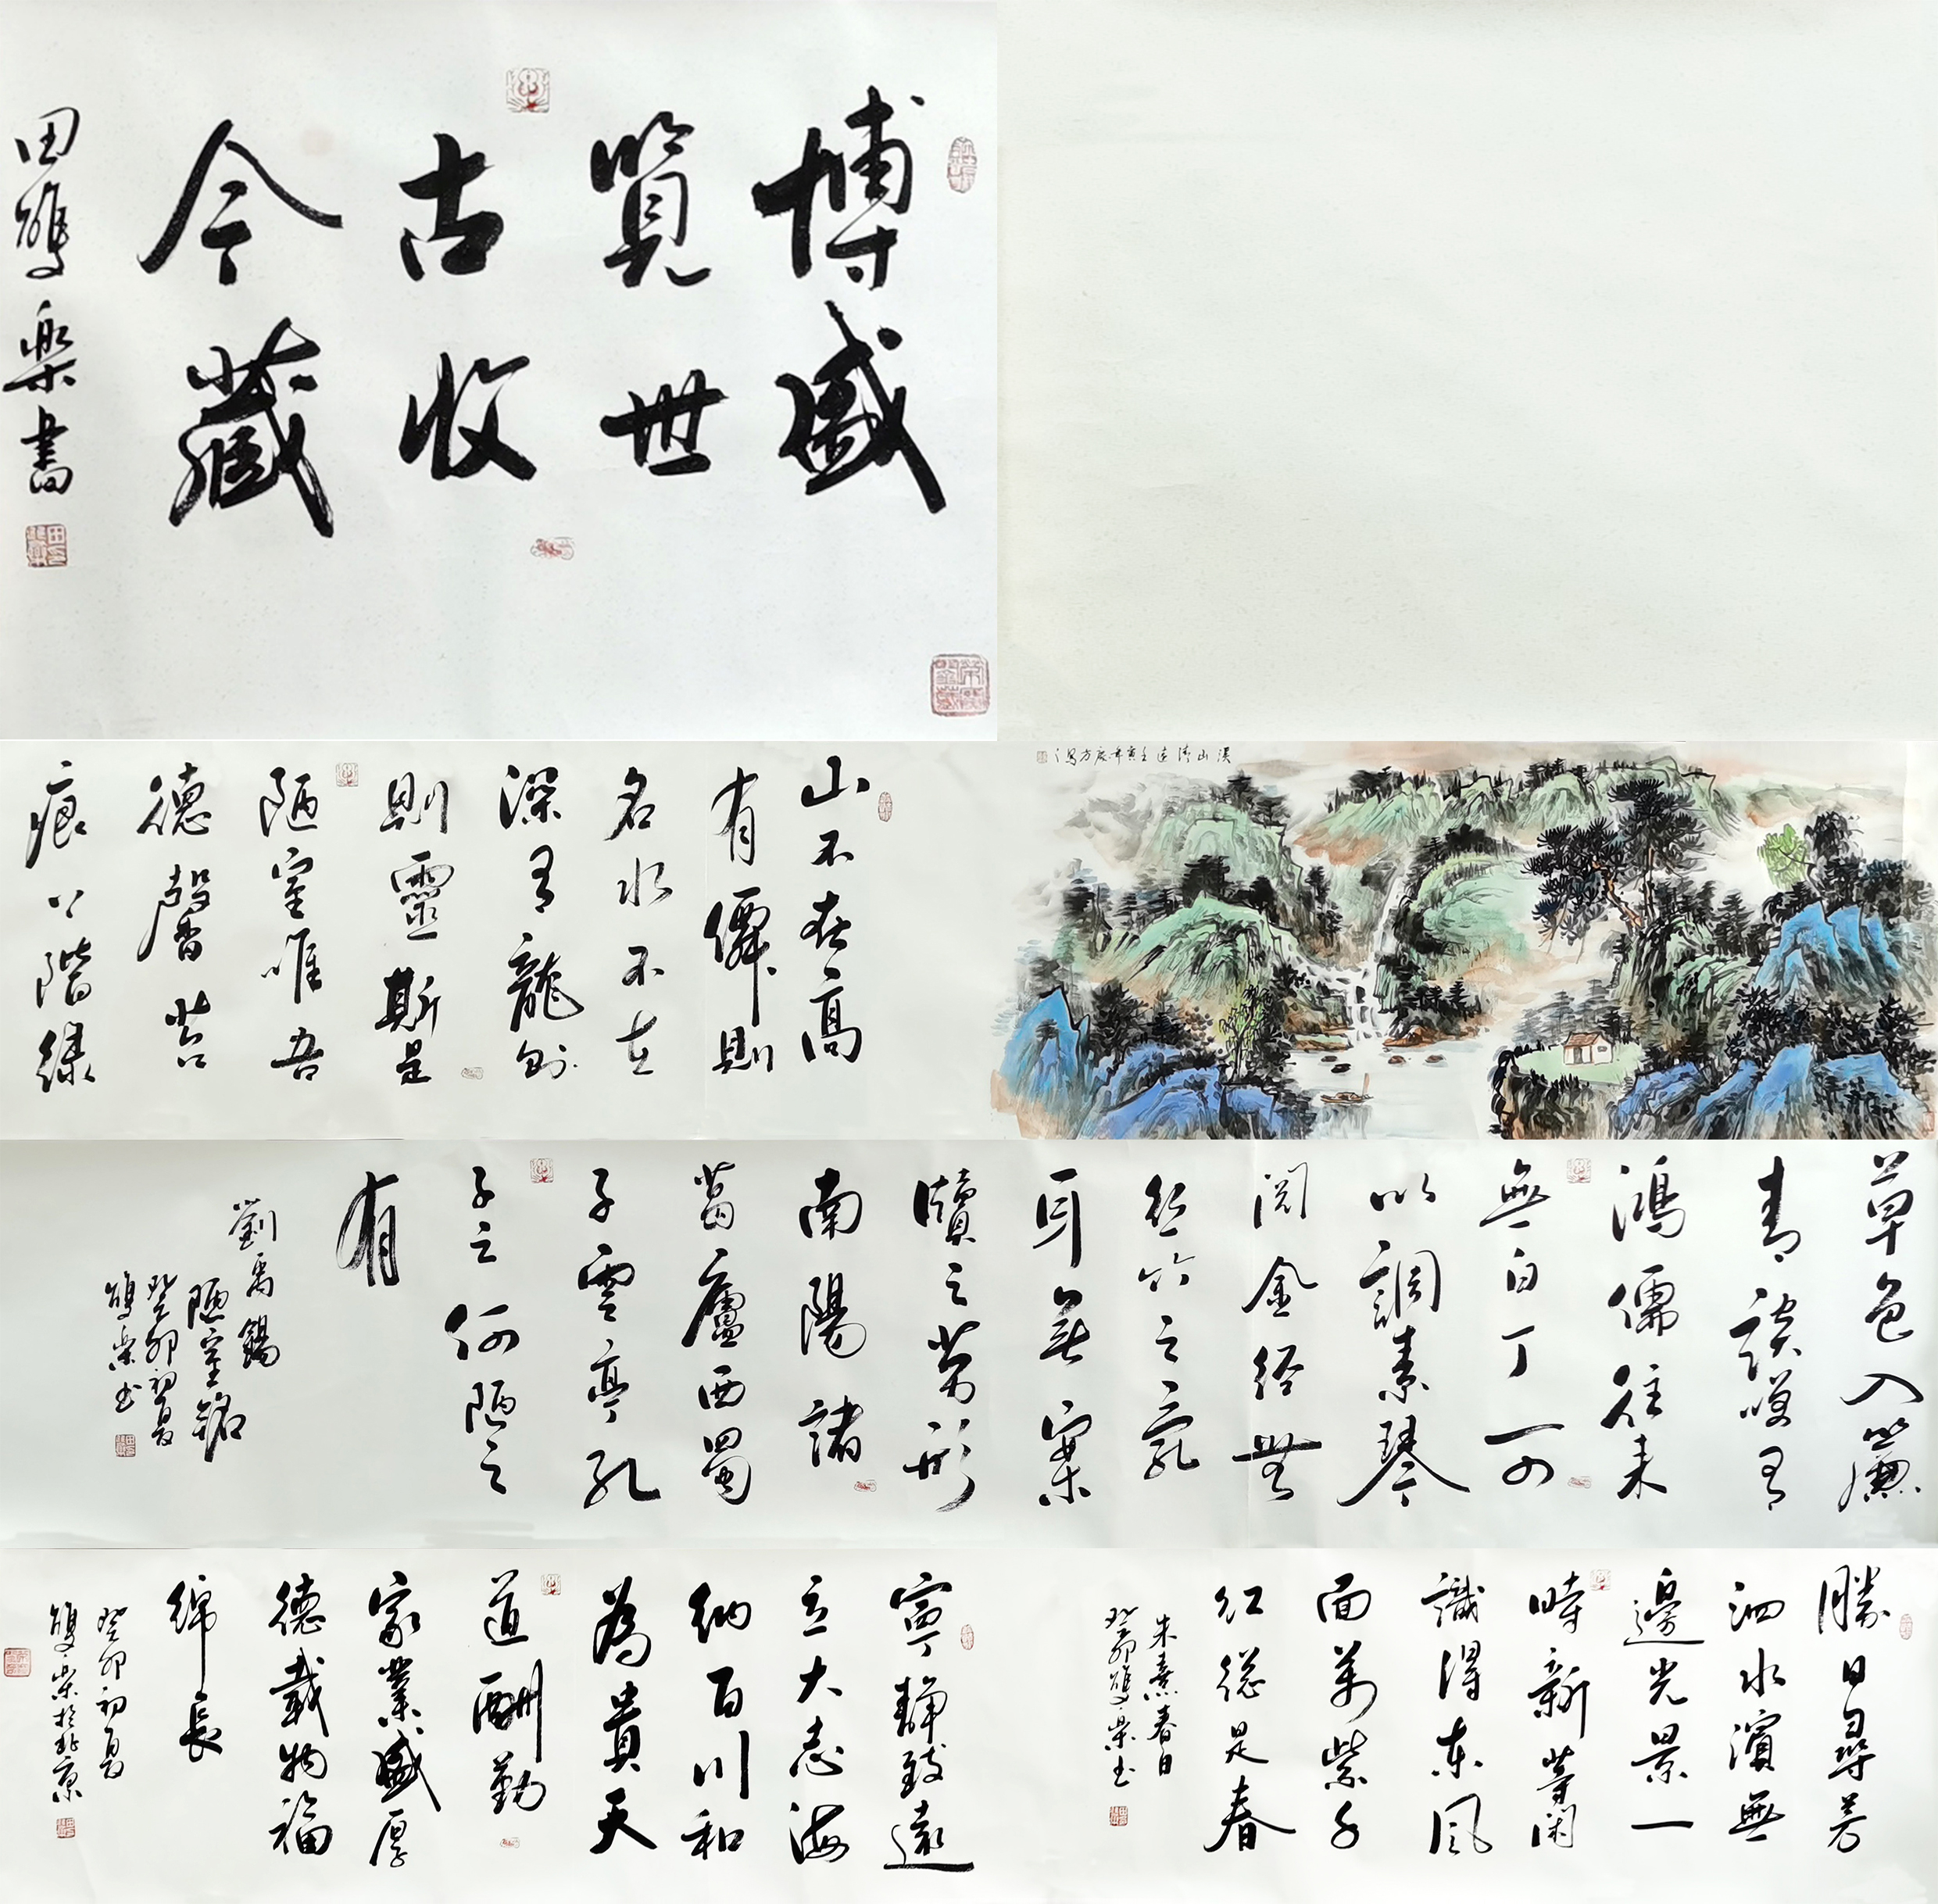 博盛
覽世
古收
今藏
田 樂書
溪山清遠壬寅年 方寫
山不在高
有僊則
名水不在
深有龍則
則靈斯是
陋室唯吾
德馨苔
痕上階緑
草色入簾
青談笑有
鴻儒往来
無白丁可
以調素琴
閲金経無
絲竹之乱
耳無案
牘之勞形
南陽諸
葛廬西蜀
子雲亭孔
子云何陋之
有
劉禹錫
陋室銘
癸卯初夏
樂书
勝日尋芳
泗水濱無
邊光景一
時新等閑
識得東風
面萬紫千
紅總是春
朱熹春日
癸卯 樂书
寧靜致遠
立大志海
納百川和
為貴天
道酬勤
家業盛厚
德載物福
綿長
癸卯初夏
樂於北京